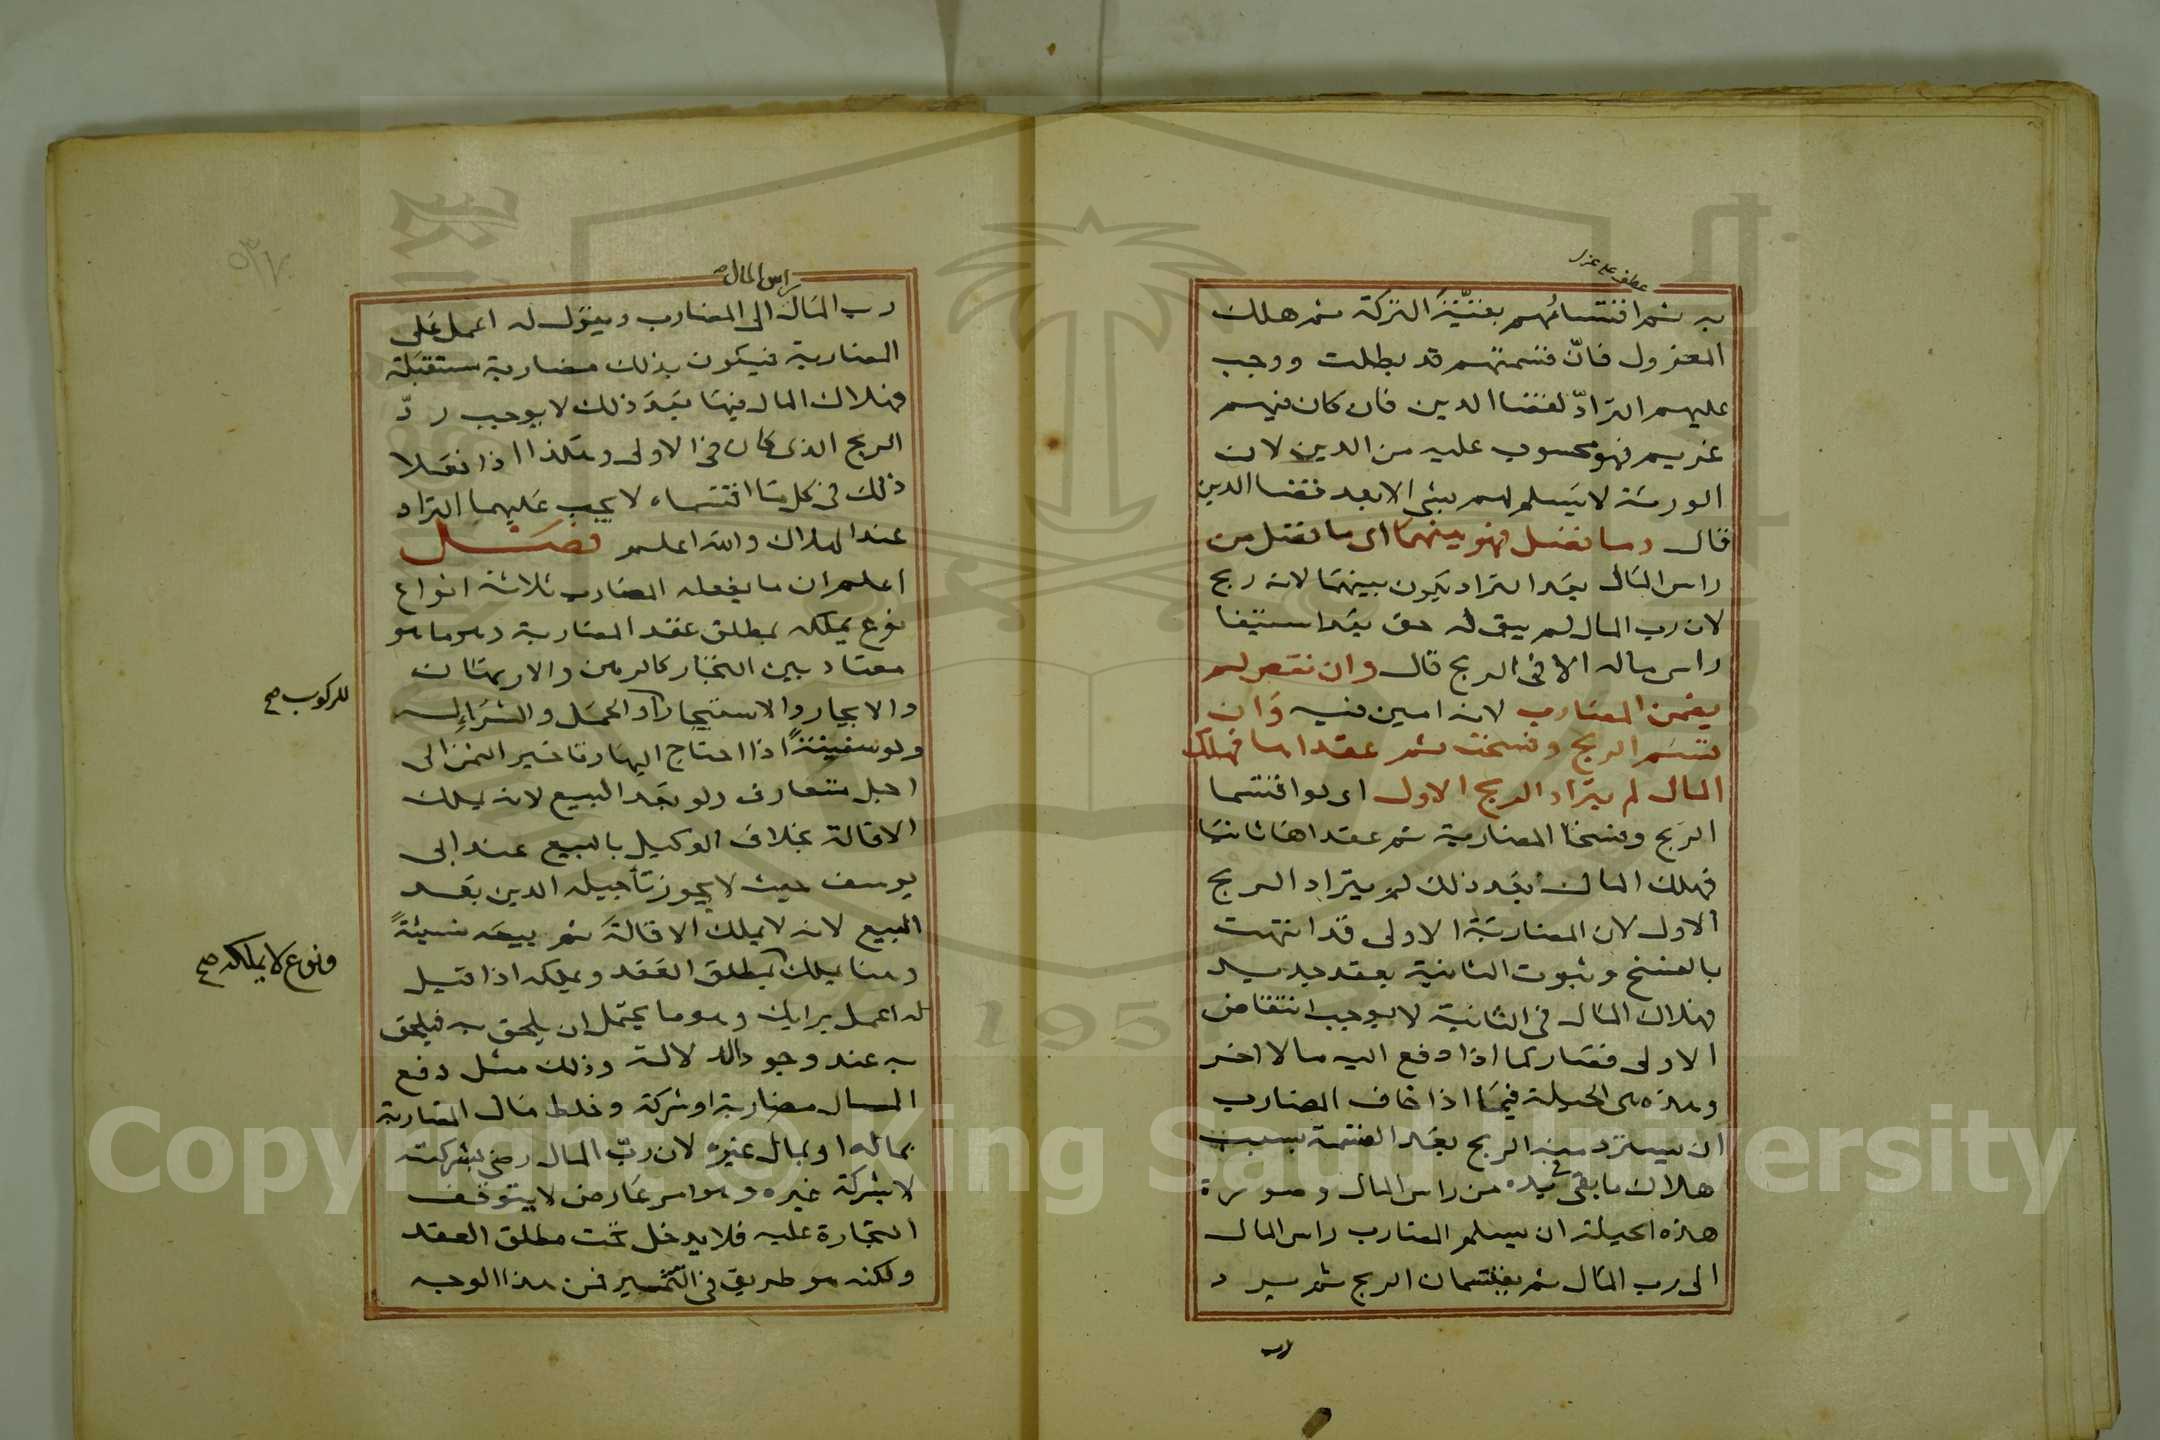 عطف على عزل
به ثم اقتسامُهم بقيّة التركة ثم هلك
المعزول فانّ قسمتهم قد بطلت ووجب
عليهم الترادّ لقضا الدين فان كان فيهم
غريم فهو محسوب عليه من الدين لان
الورثة لا يسلم لهم شي الا بعد قضا الدين
قال وما فضل فهو بينهما اى ما فضل من
راس المال بعد التراد يكون بينهما لانه ربح
لان رب المال لم يبق له حق بعد استيفا
راس ماله الا فى الربح قال وان نقص لم
يضمن المضارب لانه امين فيه وان
قسم الربح وفسخت ثم عقداها فهلك
المال لم يتراد الربح الاول اى لو اقتسما
الربح وفسخا المضاربة ثم عقداها ثانيا
فهلك المال بعد ذلك لم يتراد الربح
الاول لان المضاربة الاولى قد انتهت
بالفسخ وثبوت الثانية بعقد جديد
فهلاك المال فى الثانية لا يوجب انتقاض
الاولى فصار كما اذا دفع اليه مالا اخر
وهذه هى الحيلة فيما اذا خاف المضارب
ان يسترد منه الربح بعد القسمة بسبب
هلاك ما بقى فى يده من راس المال وصورة
هذه الحيلة ان يسلم المضارب راس المال
الى رب المال ثم يقتسمان الربح ثم يرد
رب
راس المال صح
رب المال الى المضارب ويقول له اعمل على
المضاربة فيكون بذلك مضاربة مستقبلة
فهلاك المال فيها بعد ذلك لا يوجب ردّ
الربح الذى كان فى الاولى وهكذا اذا فعلا
ذلك فى كل ما اقتسماه لا يجب عليهما التراد
عند الهلاك والله اعلم فصل
اعلم ان ما يفعله المضارب ثلاثة انواع
نوع يملكه بمطلق عقد المضاربة وهو ما هو
معتاد بين التجار كالرهن والارتهان
والايجار والاستيجار او الحمل والشراء له
للركوب صح
ولو سفينةً اذا احتاج اليها وتاخير الثمن الى
اجل متعارف ولو بعد البيع لانه يملك
الاقالة بخلاف الوكيل بالبيع عند ابى
يوسف حيث لا يجوز تأجيله الدين بعد
البيع لانه لا يملك الاقالة ثم بيعه نسيئةً
ونوع لا يملكه صح
وهنا يملك بمطلق العقد ويملكه اذا قيل
له اعمل برايك وهو ما يحتمل ان يلحق به فيلحق
به عند وجود الدلالة وذلك مثل دفع
المال مضاربة او شركة وخلط مال المضاربة
بماله او بمال غيره لان ربّ المال رضى بشركته
لا بشركة غيره وهو امر عارض لا يتوقف
التجارة عليه فلا يدخل تحت مطلق العقد
ولكنه هو طريق فى التثمير فمن هذا الوجه